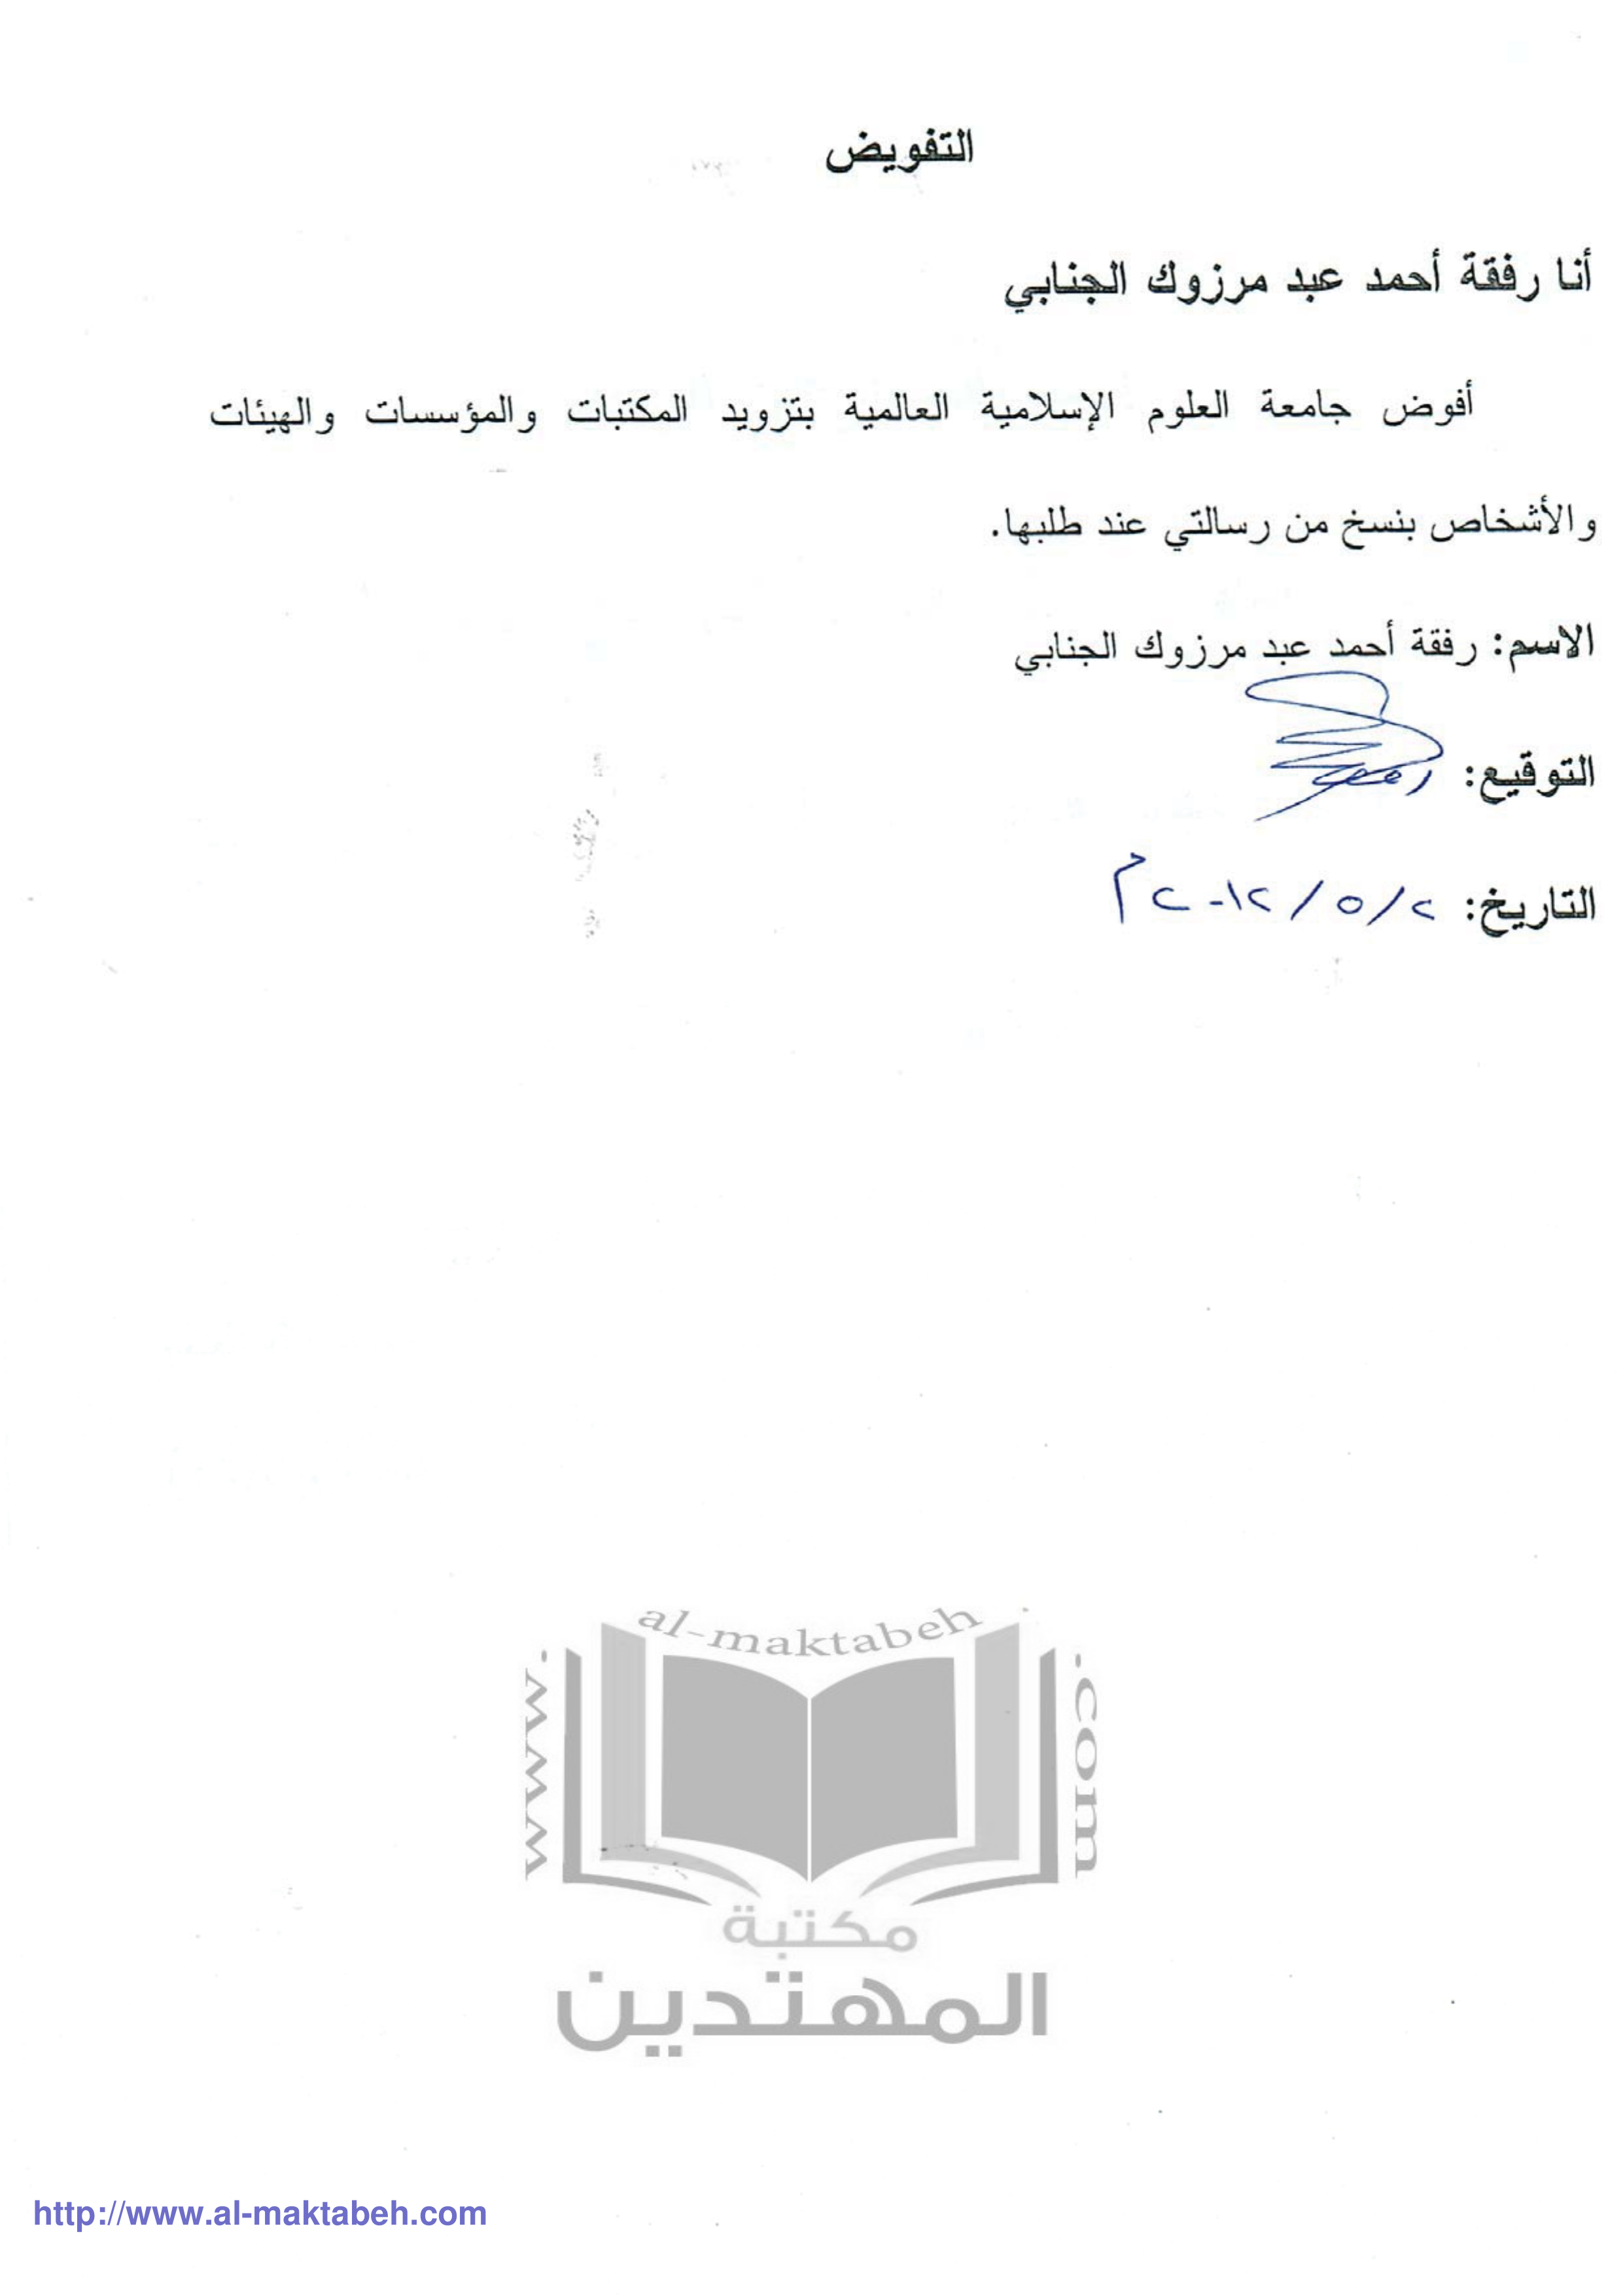 التفويض
أنا رفقة أحمد عبد مرزوك الجنابي
أفوض جامعة العلوم الإسلامية العالمية بتزويد المكتبات والمؤسسات والهيئات
والأشخاص بنسخ من رسالتي عند طلبها.
الاسم: رفقة أحمد عبد مرزوك الجنابي
التوقيع:
التاريخ: ٢/ ٥ / ٢٠١٢م
www.al-maktabeh.com
مكتبة
المهتدين
http://www.al-maktabeh.com